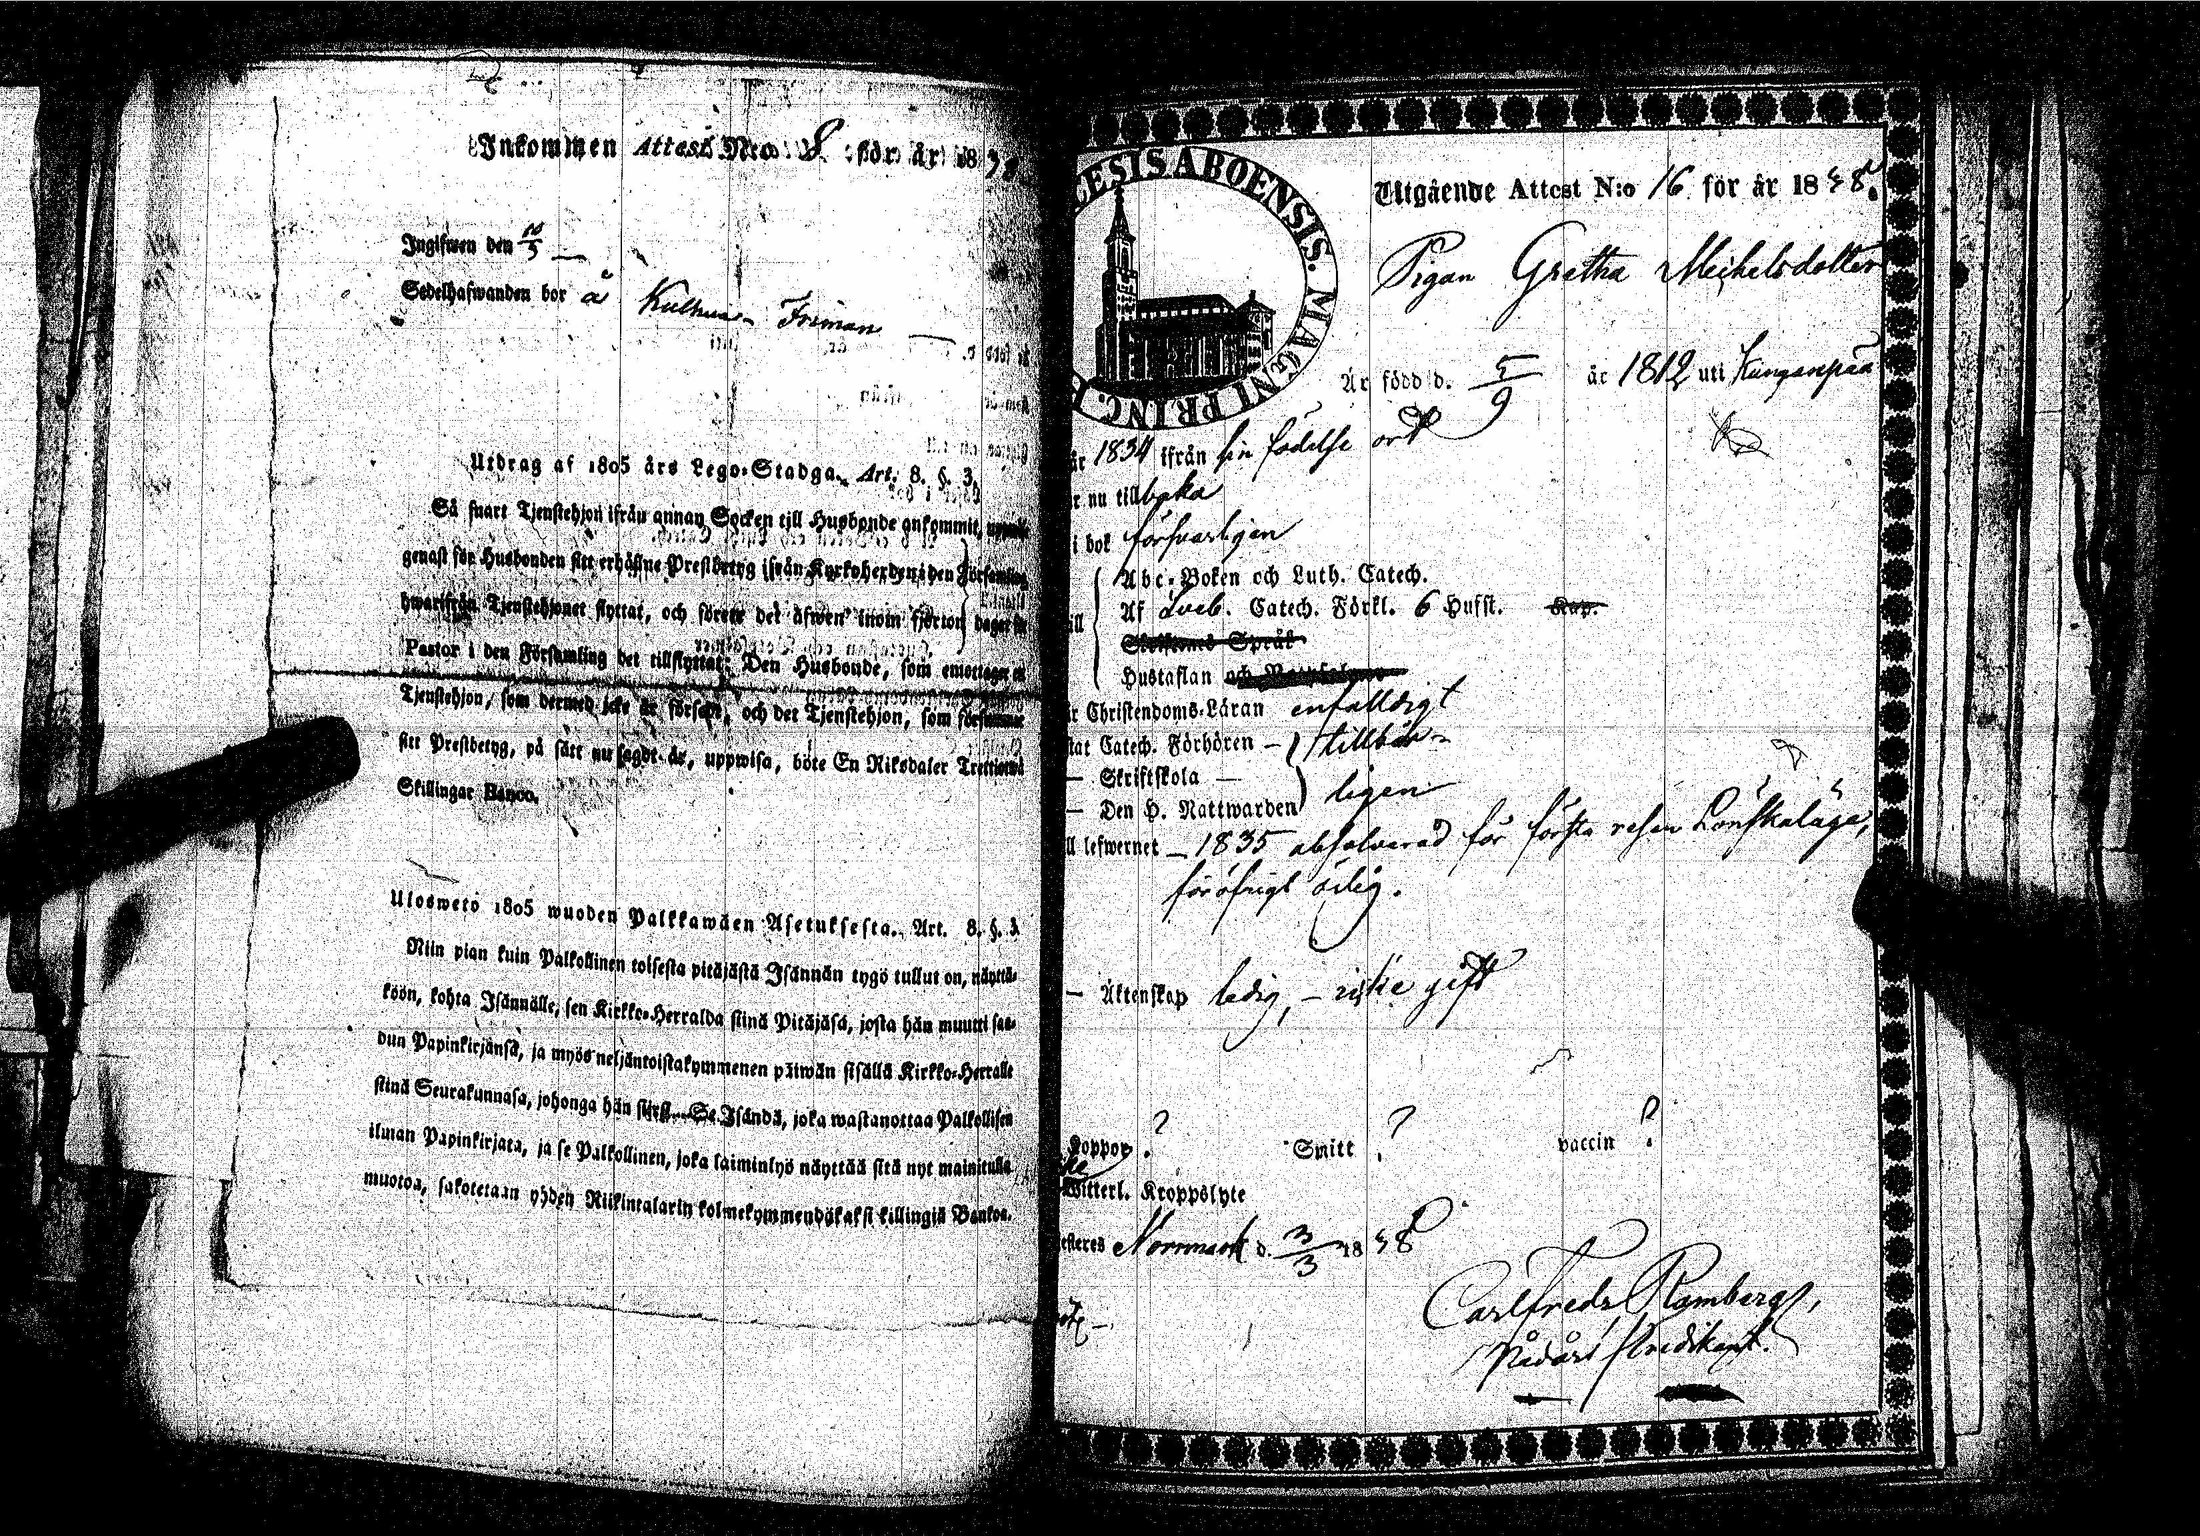 Inkommen Attest N:o 8 för år 1838
Ingifwen den 10/5
Sedelhafwanden bor å Kulhua- Friman
Utdrag af 1805 års Lego-Stadga. Art. 8. §. 3.
Så snart Tjenstehjon ifrån annan Socken till Husbonde ankommit,
genast för Husbonden sitt erhållne Prestbetyg ifrån Kyrkoherden i den Församling
hwarifrån Tjenstehjonet flyttat, och förete det äfwen inom fjorton dagar
Pastor i den Församling det tillflyttat: Den Husbonde, som emottager
Tjenstehjon, som dermed icke är försedt, och det Tjenstehjon, som försummar
sitt Prestbetyg, på sätt nu sagdt är, uppwisa, böte En Riksdaler Trettiotwå
Skillingar Banco.
Uloswetö 1805 wuoden Palkkawäen Asetuksesta. Art. 8. §. 3.
Niin pian kuin Palkollinen toisesta pitäjästä Isännän tygö tullut on, näyttä-
köön, kohta Isännälle, sen Kirkko-Herralda siinä Pitäjäsä, josta hän muutti saa-
dun Papinkirjänsä, ja myös neljäntoistakymmenen päiwän sisällä Kirkko-Herralle
siinä Seurakunnasa, johonga hän siirsi. Se Isändä, joka wastanottaa Palkollisen
ilman Papinkirjata, ja se Palkollinen, joka laiminlyö näyttää sitä nyt mainitulla
muotoa, sakotetaan yhden Riikintalarin kolmekymmendäkaksi killingiä Bankoa.
ESIS ABOENSIS. MAGNI PRINC. F
Utgående Attest N:o 16 för år 1838.
Pigan Gretha Meihelsdotter
Är född d. 5/9 år 1812 uti Kunganpää
år 1834 ifrån sin födelse ort
r nu tillbaka
i bok försvarligen
Abc-Boken och Luth. Catech.
ill Af Sveb. Catech. Förkl. 6 Hufst. Kap.
Skriftens Språk
Hustaflan och
r Christendoms-Läran enfalldigt
stat Catech. Förhören – tillbör-
— Skriftskola —
— Den H. Nattwarden ligen
ll lefwernet – 1835 absolverad för första resan Lönskaläge,
föröfrigt ärlig.
— Äktenskap ledig, – icke gift
Koppor ? Smitt ? vaccin ?
Witterl. Kroppslyte
esteres Norrmark d. 3/3 1838
Carlfredr Ramberg,
Nådårs Predikant.